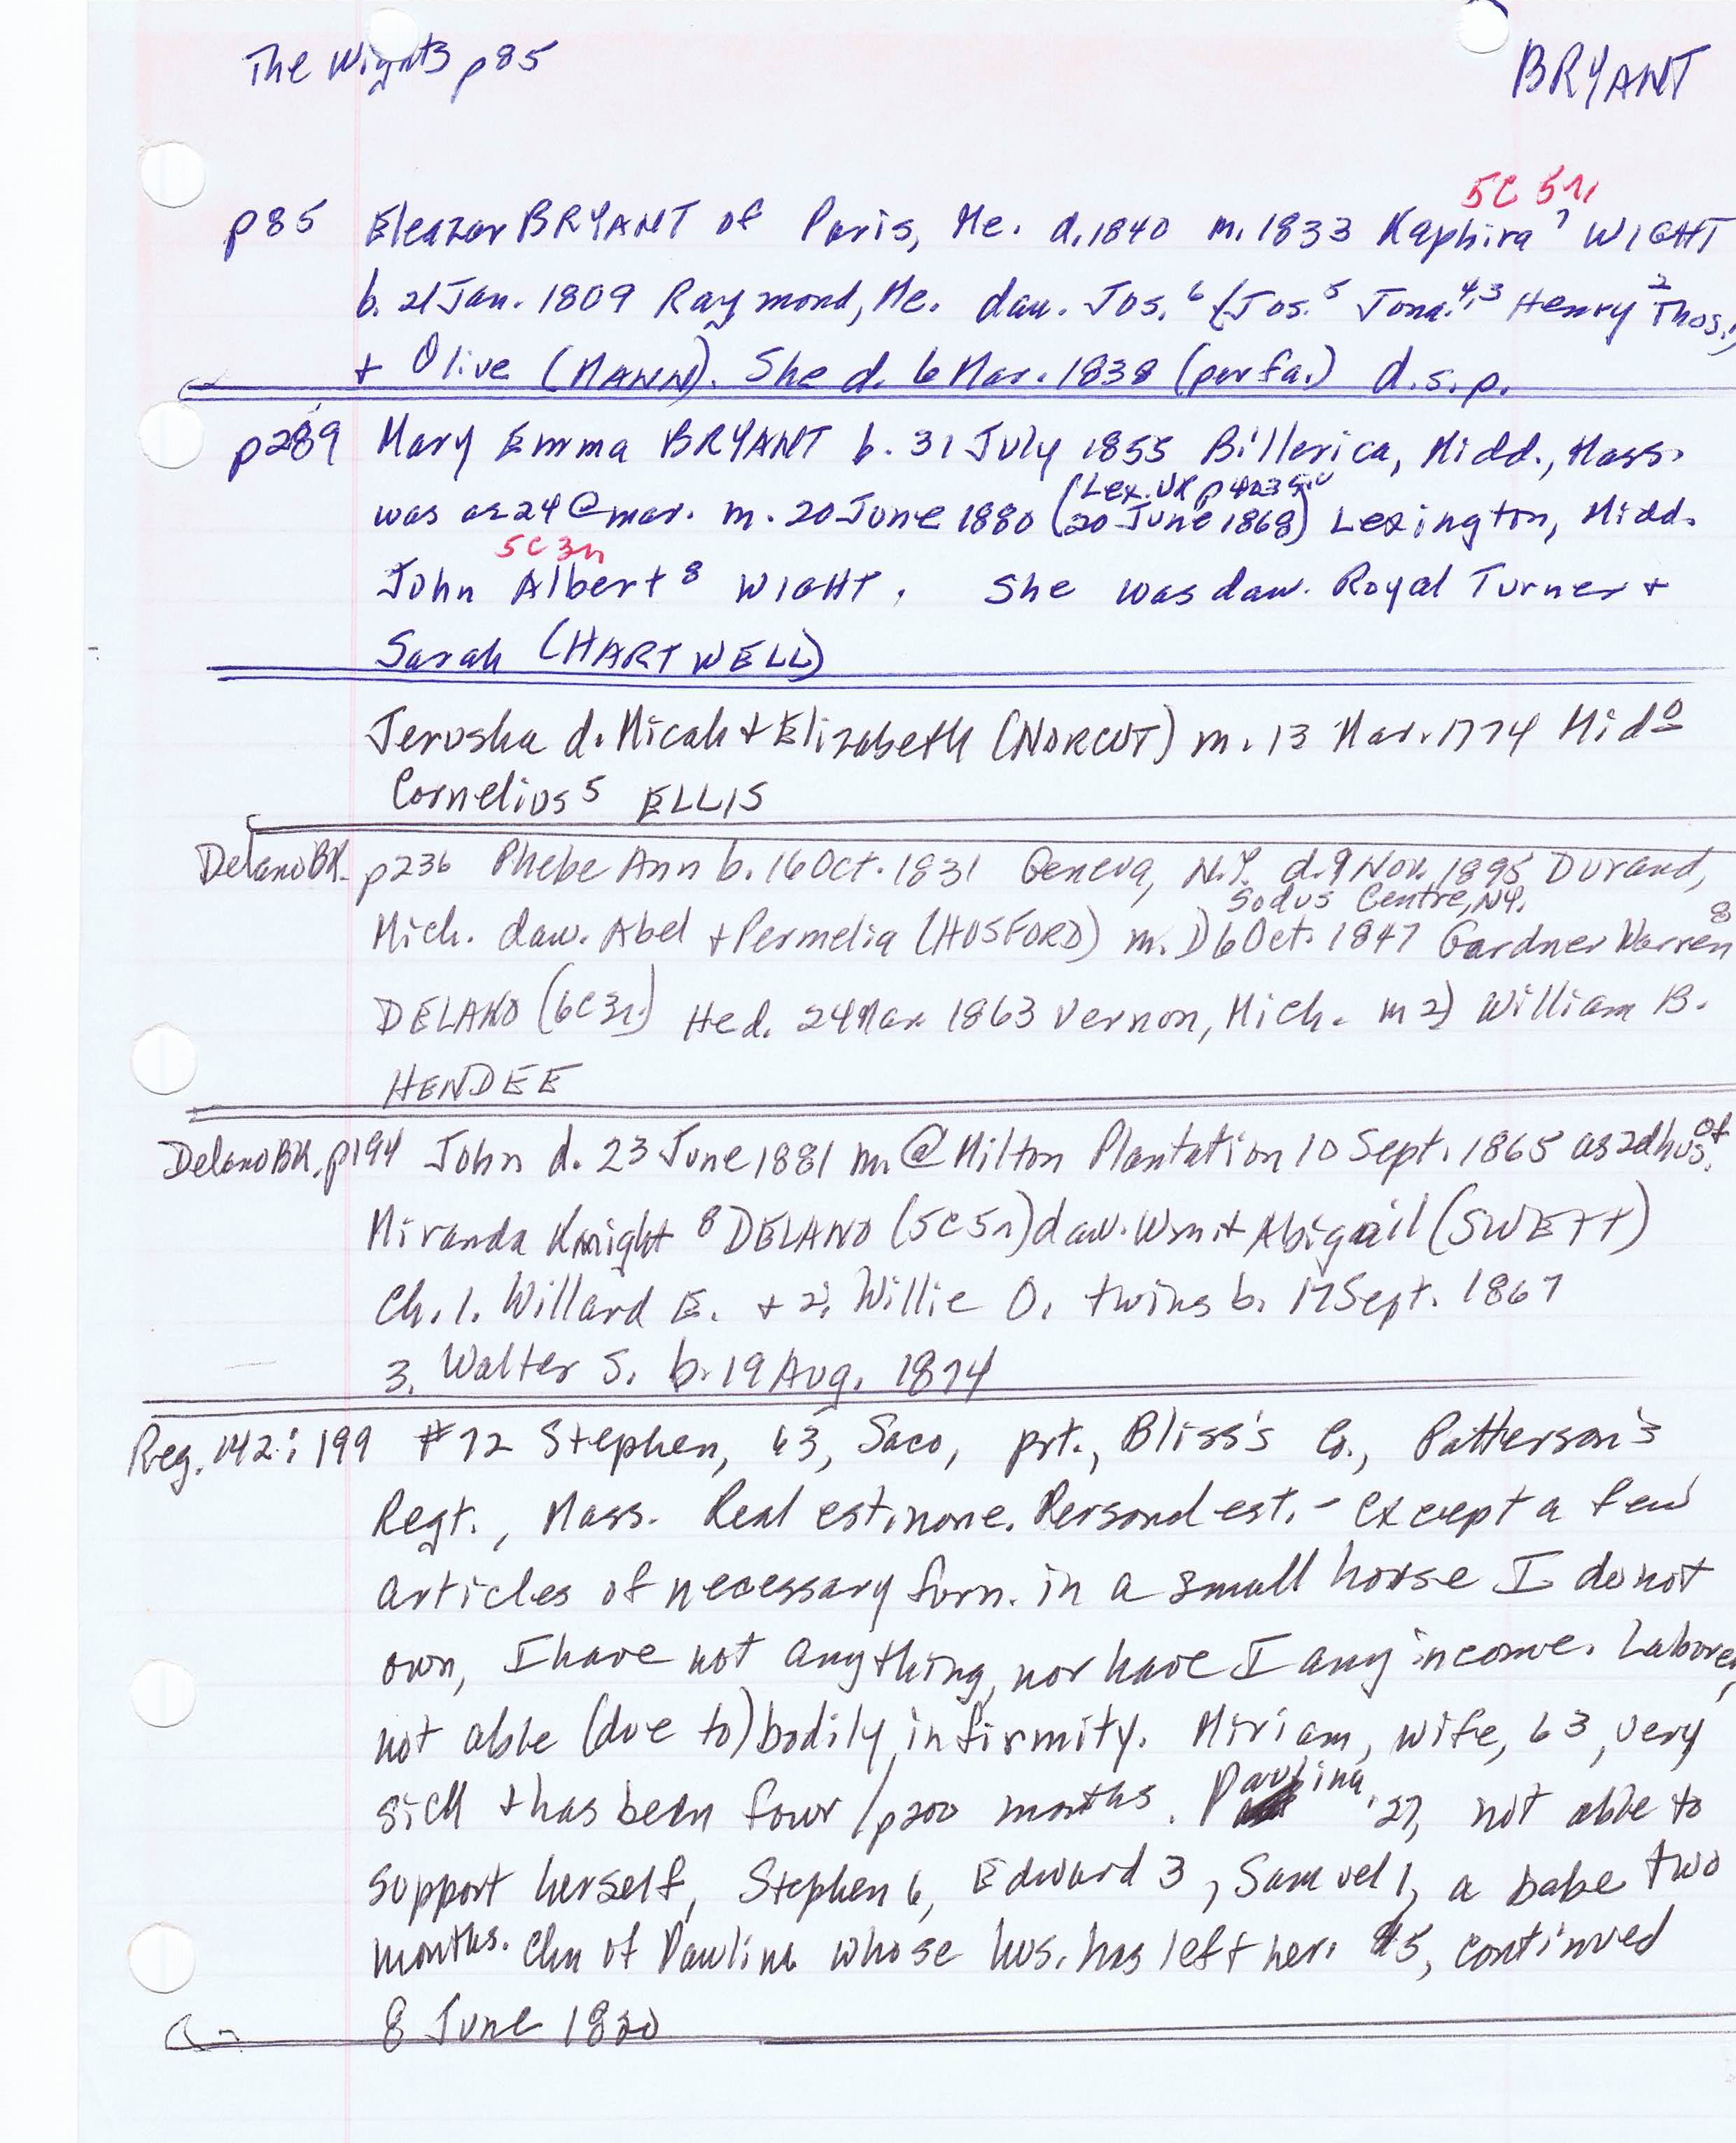 The Wights p85
BRYANT
5C 5r
p85 Eleazar BRYANT of Paris, Me. d. 1840 m. 1833 Kaphira 7 WIGHT
b. 21 Jan. 1809 Raymond, Me. dau. Jos. 6 (Jos. 5 Jona. 4,3 Henry 2 Thos. 1)
+ Olive (MANN). She d. 6 Mar. 1838 (per fa.) d.s.p.
p289 Mary Emma BRYANT b. 31 July 1855 Billerica, Midd., Mass.
(Lex. VR p423 sic
was ae 24 @ mar. m. 20 June 1880 (20 June 1868) Lexington, Midd.
5C 3r
John Albert 8 WIGHT. She was dau. Royal Turner +
Sarah (HARTWELL)
Jerusha d. Micah + Elizabeth (NORCUT) m. 13 Mar. 1774 Mido
Cornelius 5 ELLIS
Delano BK. p236 Phebe Ann b. 16 Oct. 1831 Geneva, N.Y. d. 9 Nov. 1895 Durand,
Sodus Centre, NY.
Mich. dau. Abel + Permelia (HOSFORD) m. 1) 6 Oct. 1847 Gardner Warren 8
DELANO (6C3r) He d. 24 Mar. 1863 Vernon, Mich. m 2) William B.
HENDEE
Delano BK. p194 John d. 23 June 1881 m. @ Milton Plantation 10 Sept. 1865 as 2d hus. of
Miranda Knight 8 DELANO (5C5r) dau. Wm + Abigail (SWETT)
Ch. 1. Willard E. + 2. Willie O. twins b. 17 Sept. 1867
3. Walter S. b. 19 Aug. 1874
Reg. 142:199 #72 Stephen, 63, Saco, prt., Bliss's Co., Patterson's
Regt., Mass. Real est. none. Personal est. - except a few
articles of necessary furn. in a small house I do not
own, I have not anything, nor have I any income. Laborer,
not able (due to) bodily infirmity. Miriam, wife, 63, very
sick + has been four /p200 months. Paulina, 27, not able to
support herself, Stephen 6, Edward 3, Samuel 1, a babe two
months. Chn of Paulina whose hus. has left her. $5, continued
8 June 1820